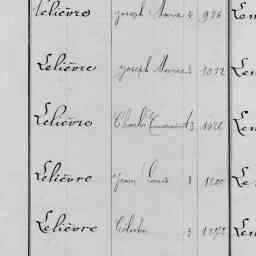 Lelièvre Joseph Marie 4 926 Len
Lelièvre Joseph Marie 1012 Len
Lelièvre Charles 3 1026 Len
Lelièvre Jean Louis 1 1200 Le
Lelièvre 3 1272 Len